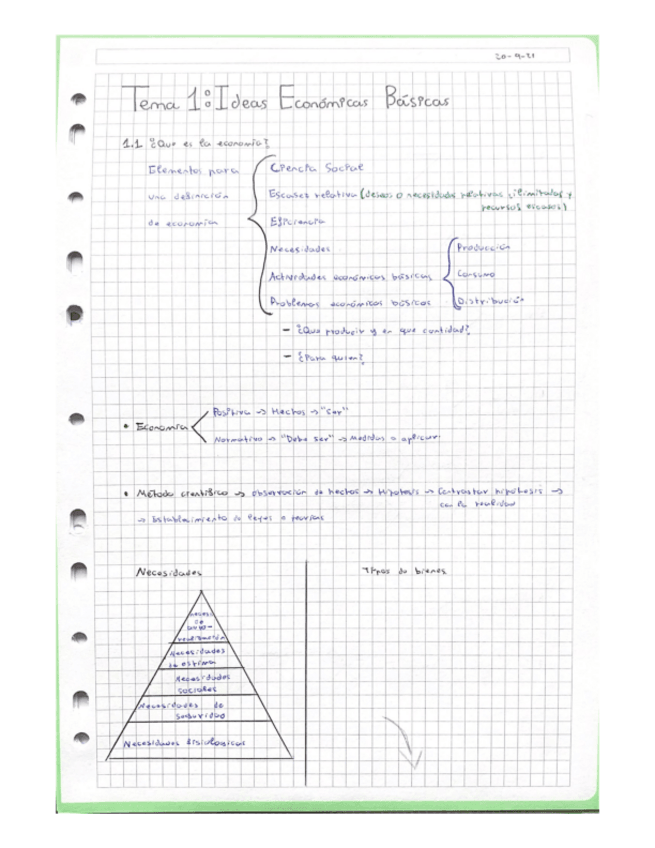 20-9-21
Tema 1: Ideas Económicas Básicas
1.1 ¿Que es la economía?
Elementos para
una definición
de economía
Ciencia Social
Escasez relativa (deseos o necesidades relativas, ilimitadas y
recursos escasos)
Eficiencia
Necesidades
Actividades económicas básicas
Producción
Consumo
Distribución
Problemas económicos básicos
- ¿Que producir y en que cantidad?
- ¿Para quien?
• Economía
Positiva -> Hechos -> "Ser"
Normativa -> "Debe ser" -> Medidas a aplicar
• Método científico -> observación de hechos -> Hipótesis -> Contrastar hipótesis ->
con la realidad
-> Establecimiento de leyes o teorías
Necesidades
neces.
de
auto-
realización
Necesidades
de estima
Necesidades
sociales
Necesidades de
seguridad
Necesidades fisiologicas
Tipos de bienes